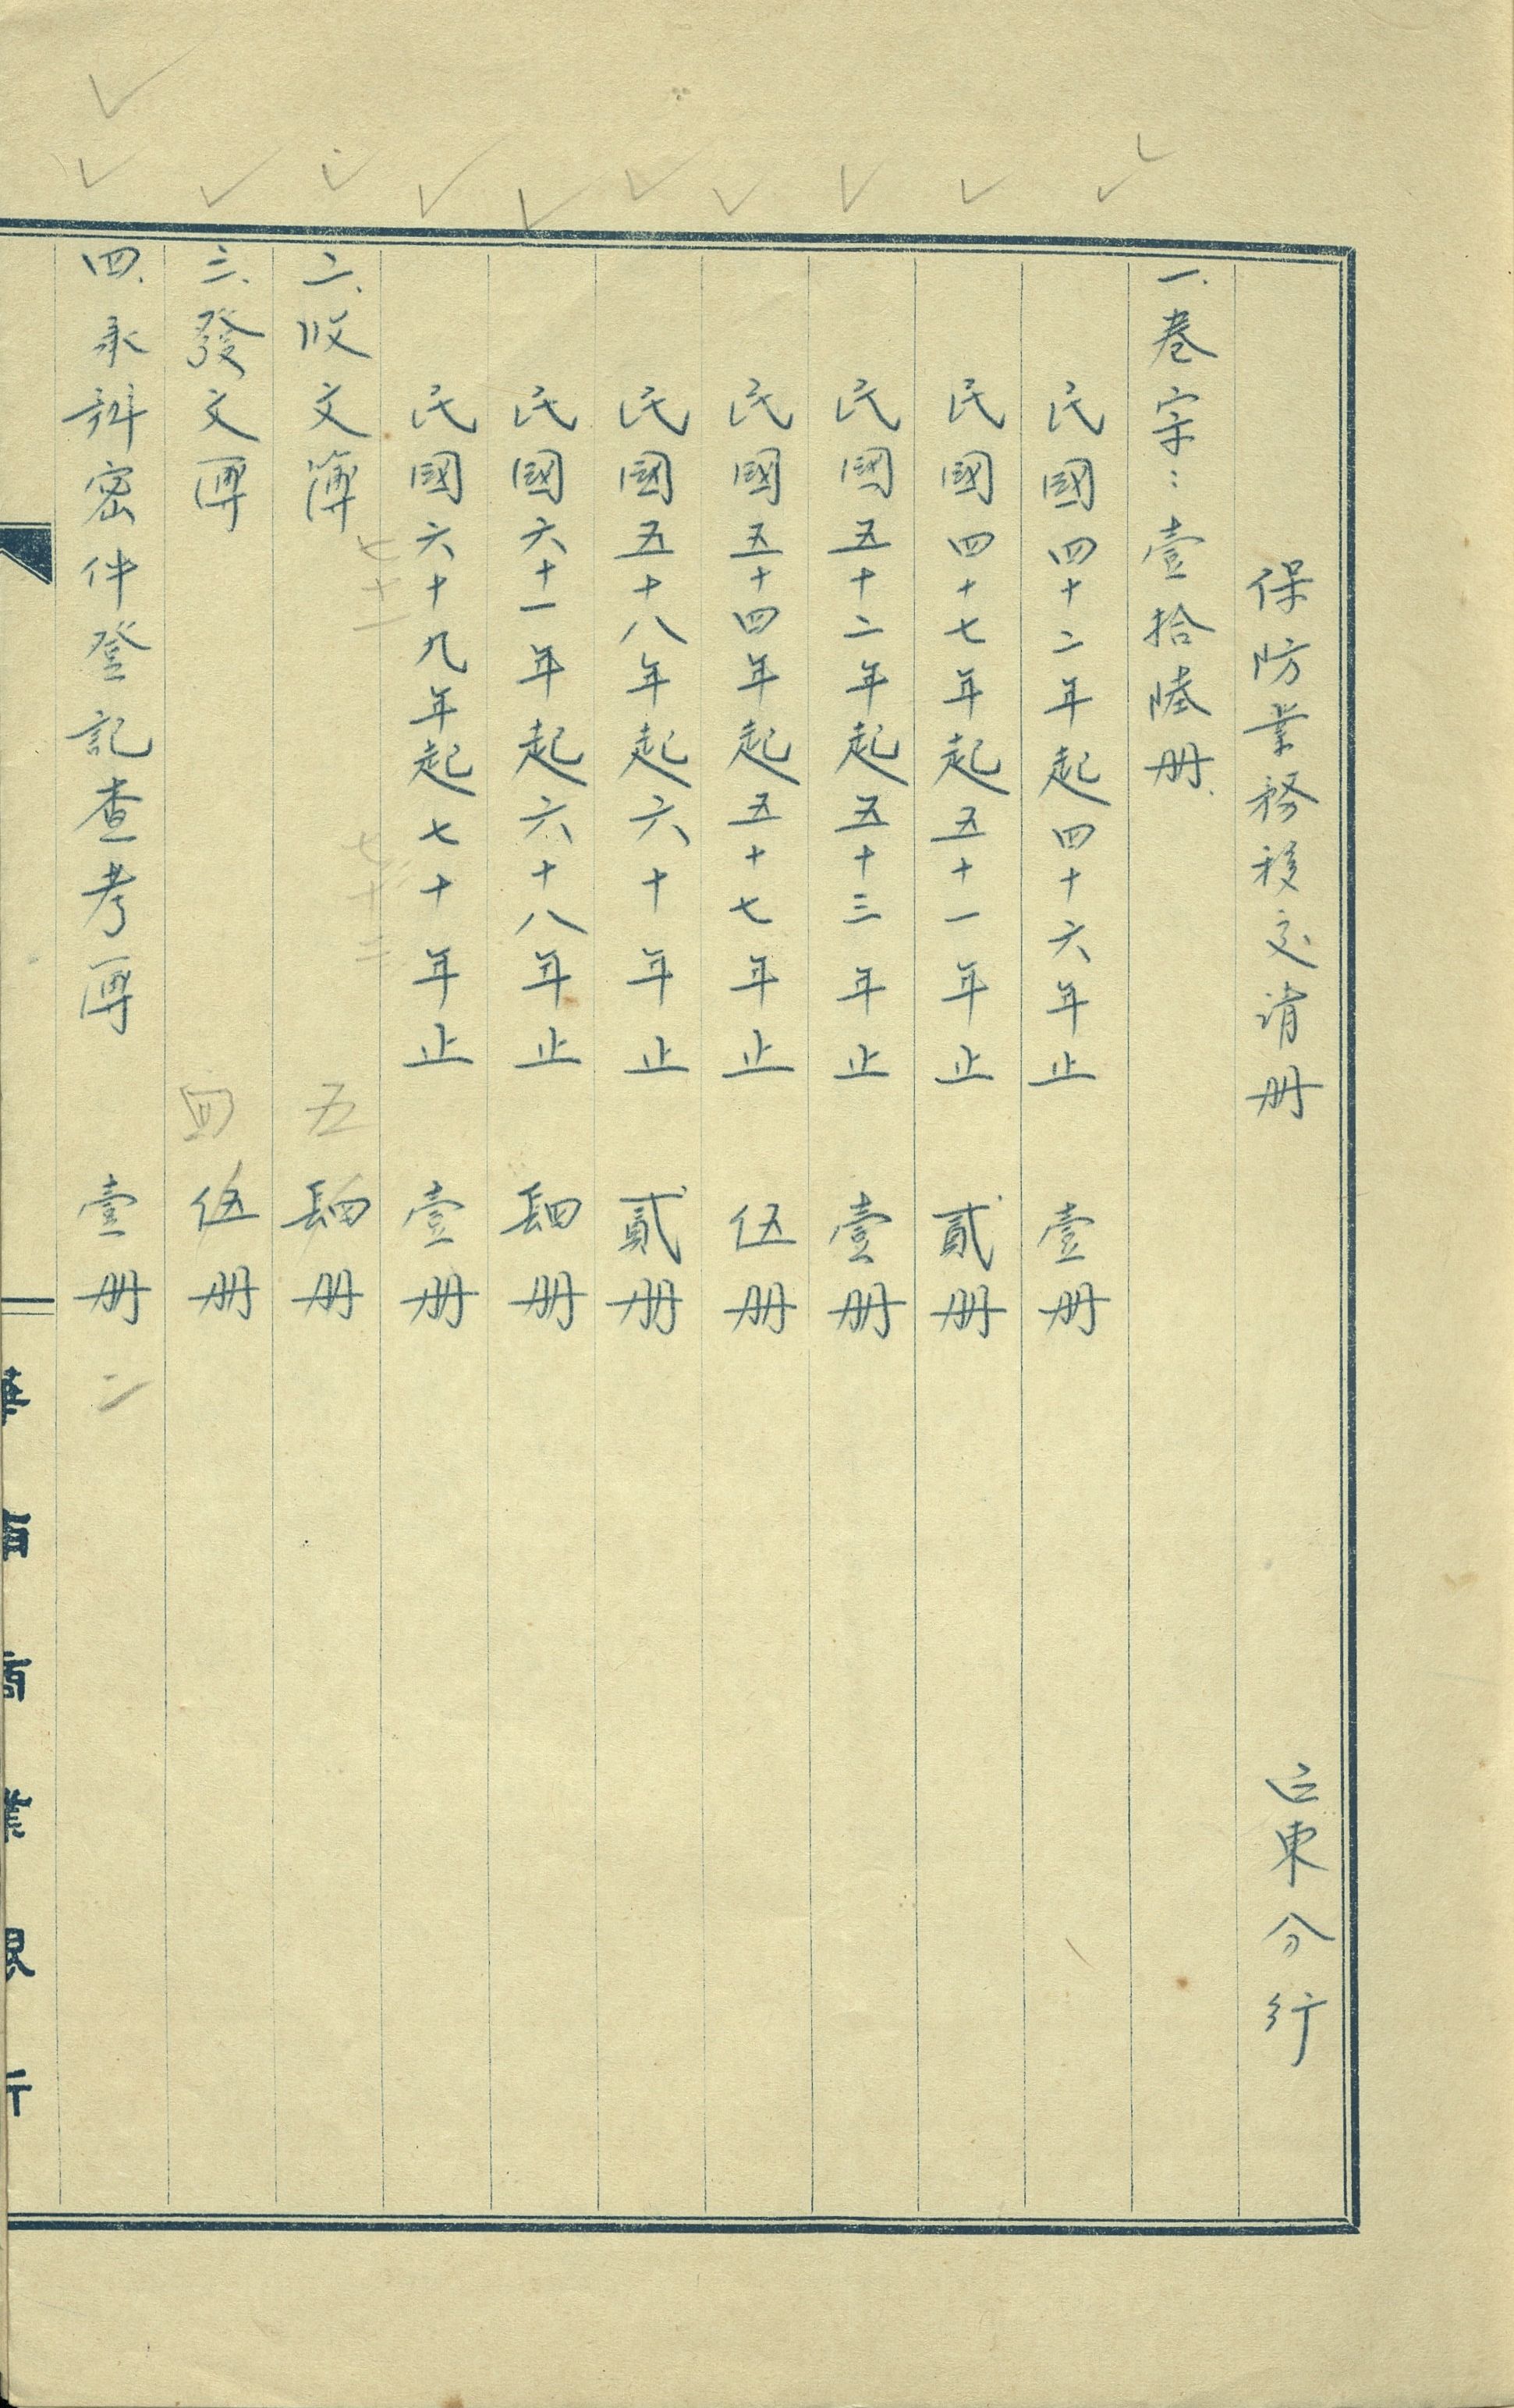 保防業務移交清冊 正東分行
一、卷宗：壹拾陸冊
民國四十二年起四十六年止 壹冊
民國四十七年起五十一年止 貳冊
民國五十二年起五十三年止 壹冊
民國五十四年起五十七年止 伍冊
民國五十八年起六十年止 貳冊
民國六十一年起六十八年止 肆冊
民國六十九年起七十年止 壹冊
七十一 七十二
二、收文簿 五 肆冊
三、發文簿 四 伍冊
四、承辦密件登記查考簿 壹冊 二
商業銀行